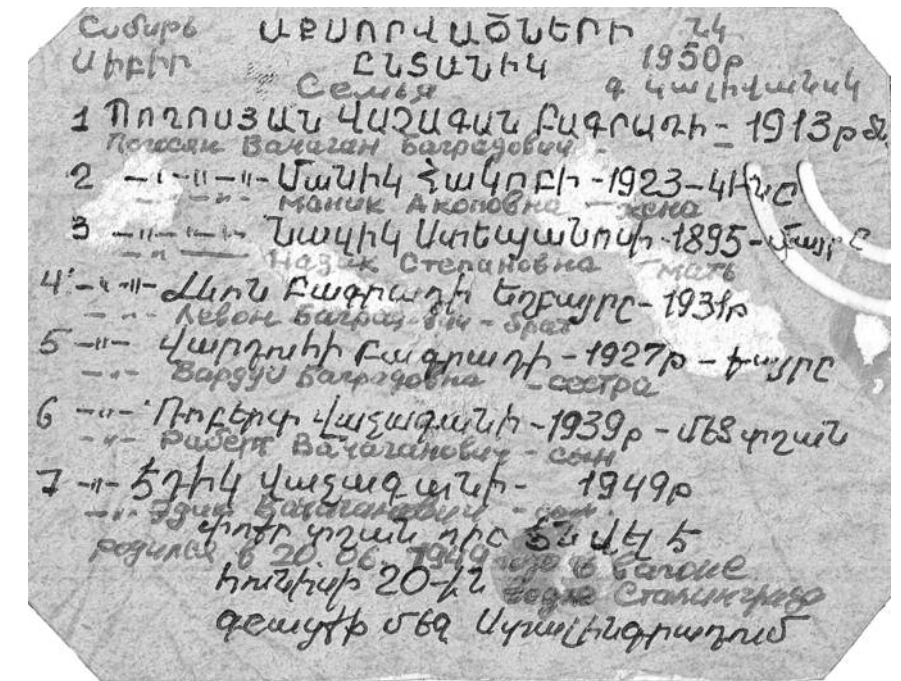 Сибирь ԱՔՍՈՐՎԱԾՆԵՐԻ 24
Սիբիր ԸՆՏԱՆԻԿ 1950թ
Семья գ Կալիվանսկ
1 Պողոսյան Վաչագան Բագրադի - 1913թ ծն
Погосян Вачаган Баградович -
2 -"-"-"- Մանիկ Հակոբի - 1923 - կինը
-"-"- Маник Акоповна - жена
3 -"-"-"- Նազիկ Ստեպանովի - 1895 - մայրը
-"- Назик Степановна - мать
4 -"-"- Լևոն Բագրադի եղբայրը - 1931թ
-"- Левон Баградович - брат
5 -"- Վարդուհի Բագրադի - 1927թ - քույրը
-"- Вардуи Баградовна - сестра
6 -"- Ռոբերտ Վաչագանի - 1939թ - մեծ տղան
-"- Раберт Вачаганович - сын
7 -"- Էդիկ Վաչագանի - 1949թ
-"- Эдик Вачаганович - сын
փոքր տղան որը ծնվել է
родился в 20.06.1949 в вагоне
հունիսի 20-ին
Сталинграда
գնացքի մեջ Ստալինգրադում